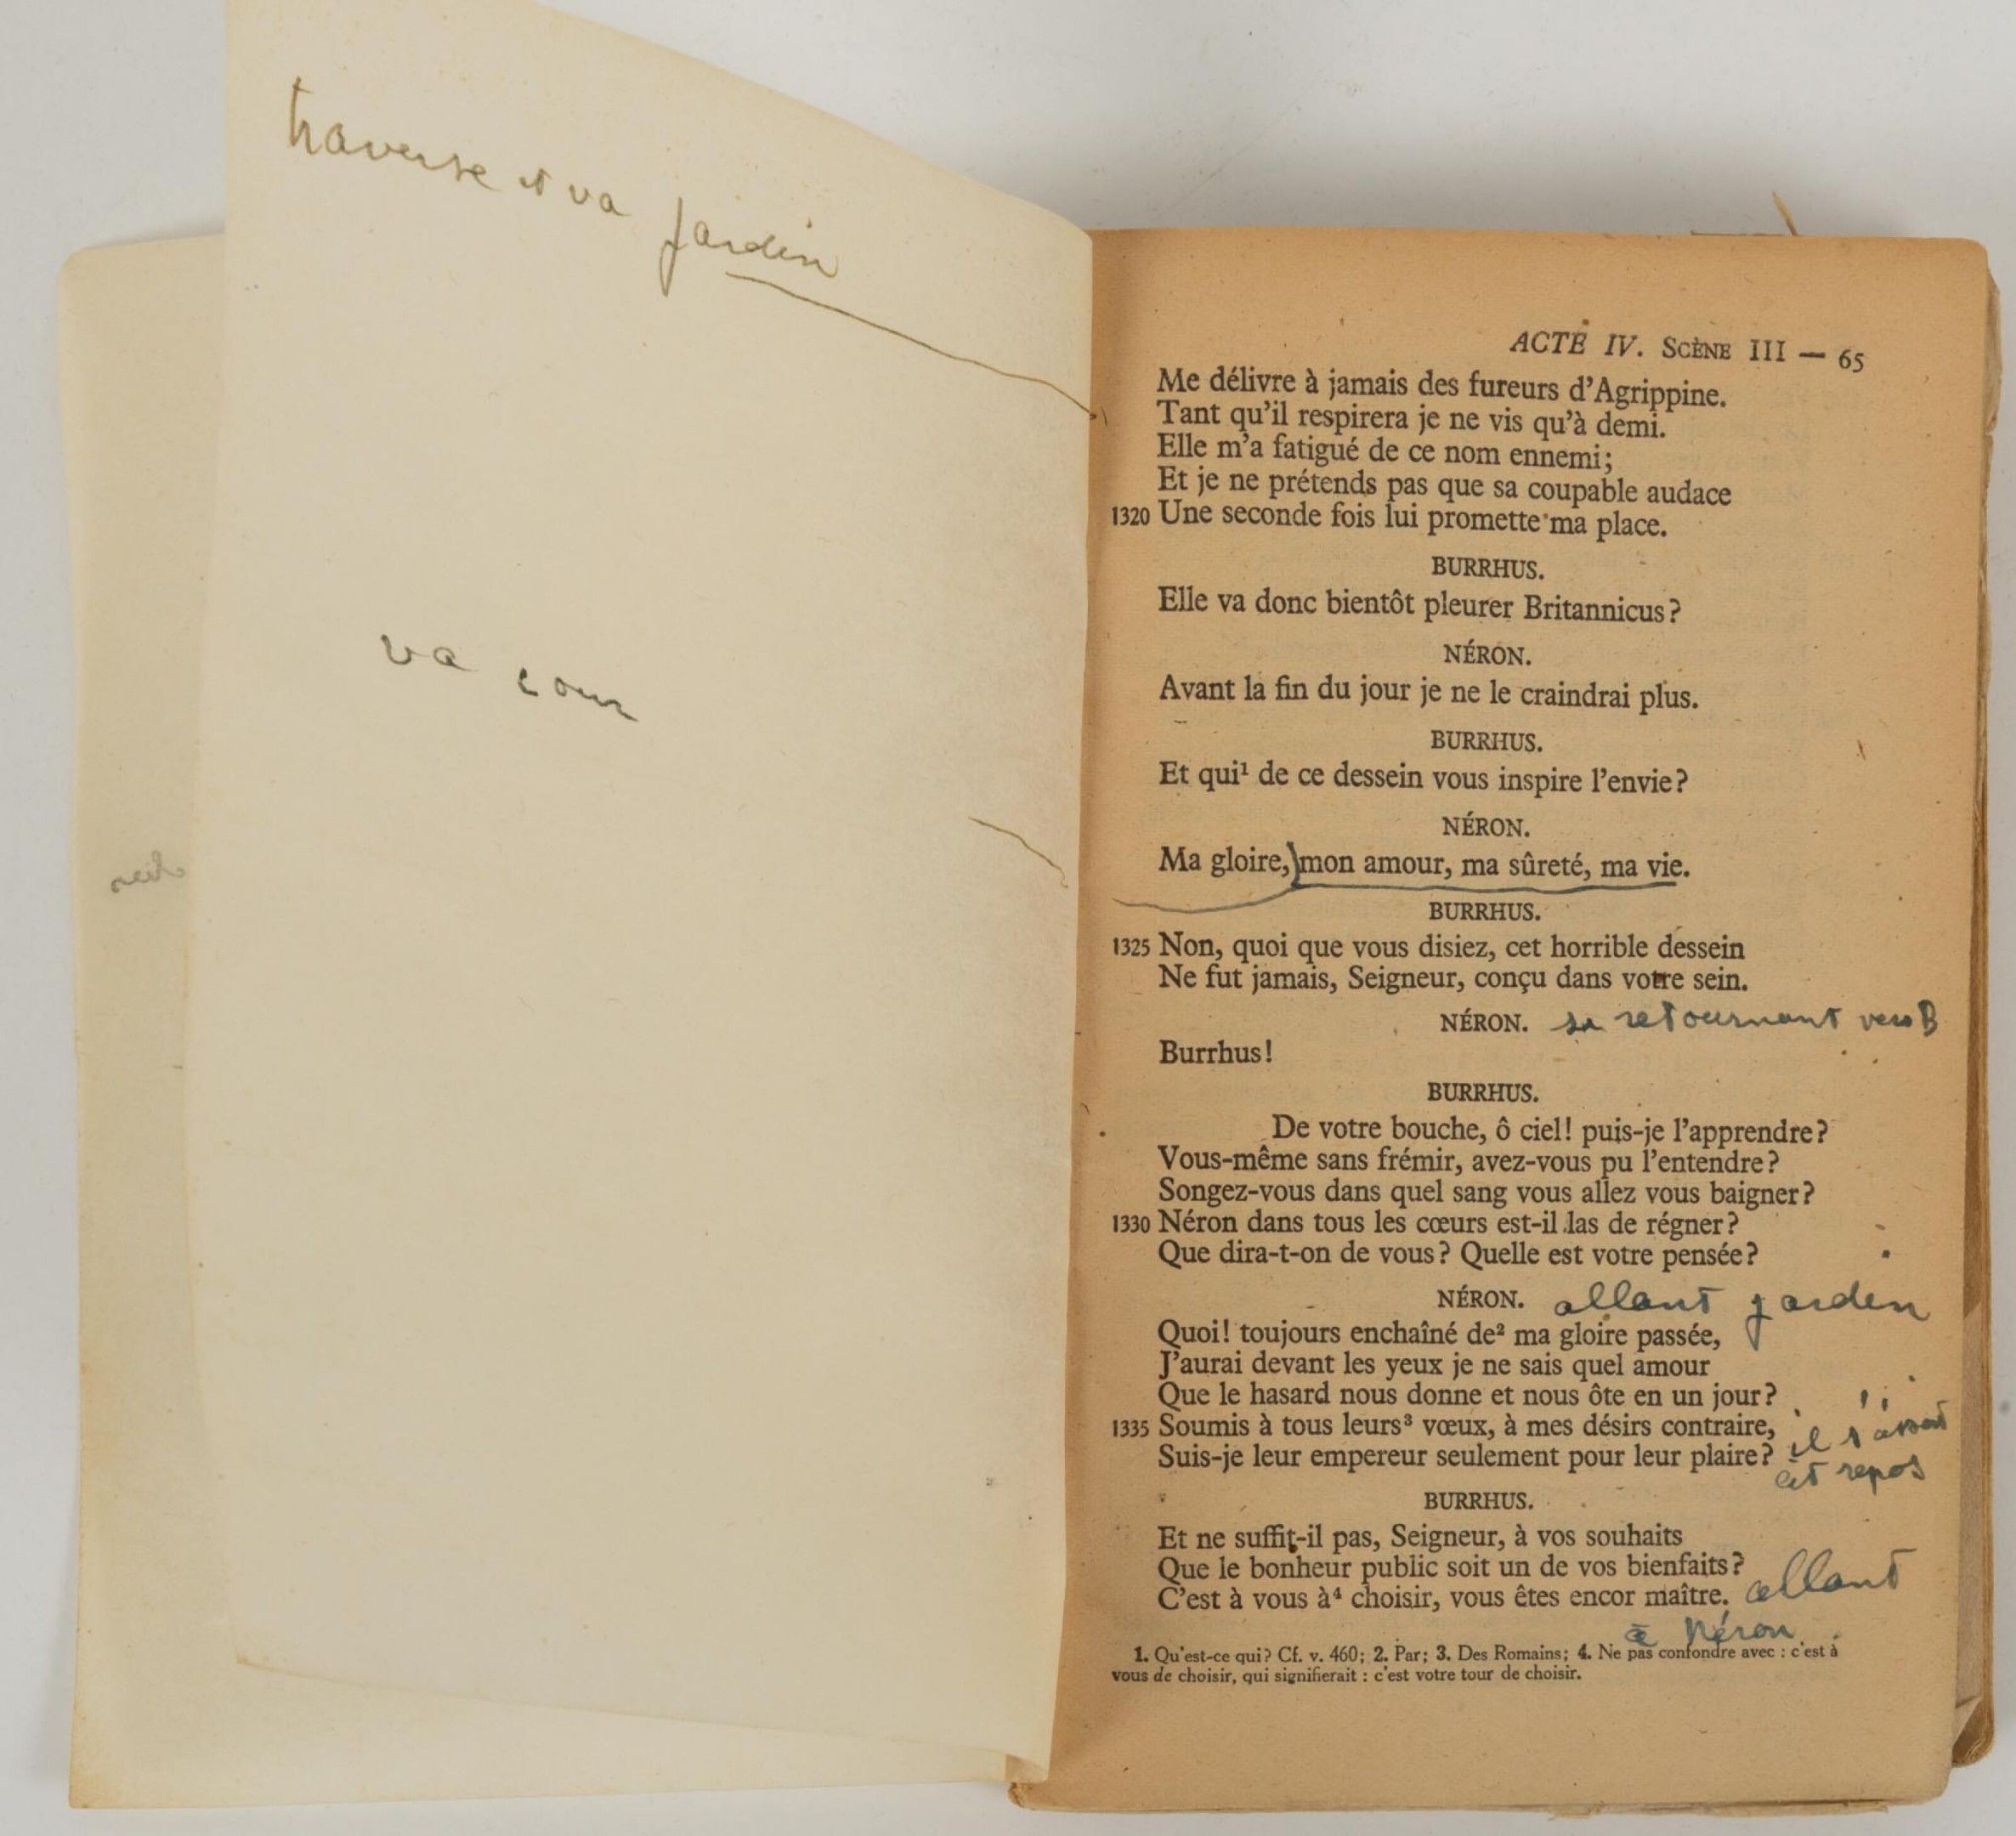 traverse et va jardin
va cour
ACTE IV. SCÈNE III — 65
Me délivre à jamais des fureurs d'Agrippine.
Tant qu'il respirera je ne vis qu'à demi.
Elle m'a fatigué de ce nom ennemi;
Et je ne prétends pas que sa coupable audace
1320 Une seconde fois lui promette ma place.
BURRHUS.
Elle va donc bientôt pleurer Britannicus?
NÉRON.
Avant la fin du jour je ne le craindrai plus.
BURRHUS.
Et qui¹ de ce dessein vous inspire l'envie?
NÉRON.
Ma gloire, mon amour, ma sûreté, ma vie.
BURRHUS.
1325 Non, quoi que vous disiez, cet horrible dessein
Ne fut jamais, Seigneur, conçu dans votre sein.
NÉRON. se retournant vers B
Burrhus!
BURRHUS.
De votre bouche, ô ciel! puis-je l'apprendre?
Vous-même sans frémir, avez-vous pu l'entendre?
Songez-vous dans quel sang vous allez vous baigner?
1330 Néron dans tous les cœurs est-il las de régner?
Que dira-t-on de vous? Quelle est votre pensée?
NÉRON. allant jardin
Quoi! toujours enchaîné de² ma gloire passée,
J'aurai devant les yeux je ne sais quel amour
Que le hasard nous donne et nous ôte en un jour?
1335 Soumis à tous leurs³ vœux, à mes désirs contraire,
Suis-je leur empereur seulement pour leur plaire? il s'assoit
et repos
BURRHUS.
Et ne suffit-il pas, Seigneur, à vos souhaits
Que le bonheur public soit un de vos bienfaits?
C'est à vous à⁴ choisir, vous êtes encor maître. allant
à Néron
1. Qu'est-ce qui? Cf. v. 460; 2. Par; 3. Des Romains; 4. Ne pas confondre avec : c'est à
vous de choisir, qui signifierait : c'est votre tour de choisir.